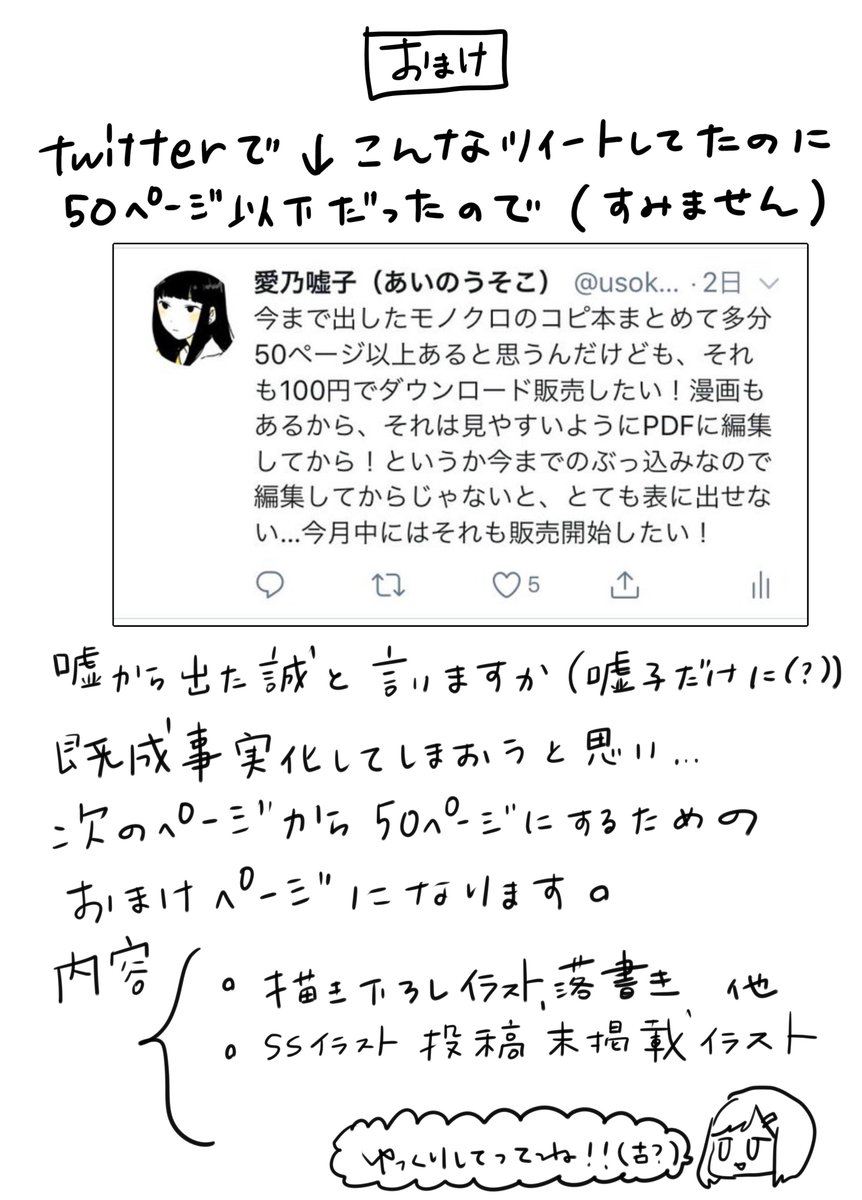 おまけ
twitterで↓こんなツイートしてたのに
50ページ以下だったので(すみません)
愛乃嘘子（あいのうそこ） @usok... ・2日
今まで出したモノクロのコピ本まとめて多分
50ページ以上あると思うんだけども、それ
も100円でダウンロード販売したい！漫画も
あるから、それは見やすいようにPDFに編集
してから！というか今までのぶっ込みなので
編集してからじゃないと、とても表に出せな
い...今月中にはそれも販売開始したい！
5
嘘から出た誠と言いますか(嘘子だけに(?))
既成事実化してしまおうと思い...
次のページから50ページにするための
おまけページになります。
内容
・描き下ろしイラスト、落書き 他
・SSイラスト 投稿 未掲載イラスト
ゆっくりしてってね!!(古?)